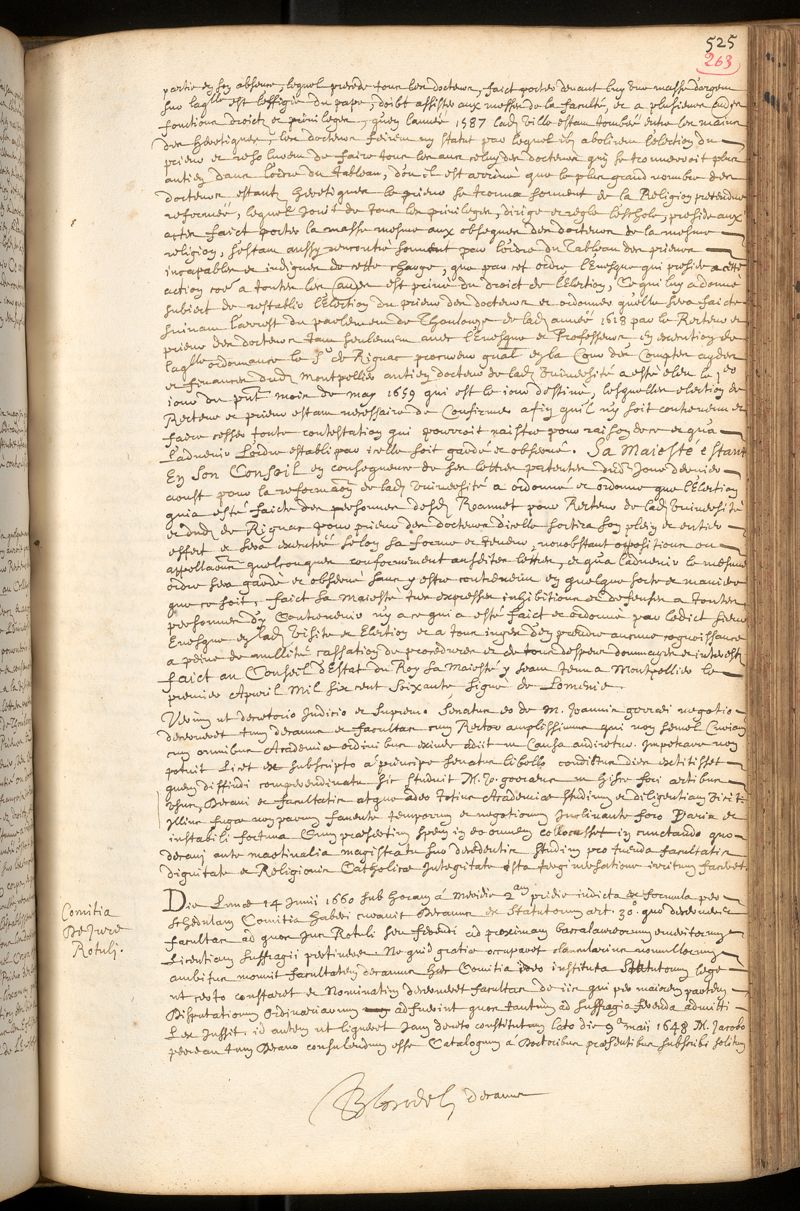 525
263
partie en son absence, lequel precede tous les docteurs, faict porter devant luy une masse d'argent
sur laqlle est l'effigie du pape, doibt assister aux messes de la faculté, et a plusieurs autres
fonctions droicts et privileges, quen l'année 1587 lad. ville estant tombée entre les mains
des heretiques, les docteurs feirent un statut par lequel ils abolirent l'election du
prieur et resolurent de faire tous les ans celuy des docteurs qui se trouveroit plus
antien dans l'ordre du tableau, d'ou il est arrivé que le plus grand nombre des
docteurs estants heretiques le prieur se trouva souvent de la Religion pretendue
reformée, lequel jouit de tous les privileges, dirige et regle l'eschole, preside aux
actes faict porter la masse mesme aux obseques des docteurs de la mesme
religion, s'estant aussy rencontré souvent par l'ordre du Tableau des prieurs
incapables et indignes de cette charge, que par cet ordre l'Evesque qui preside a cette
action est privé du droict de l'election, Ce qui luy a donné
subiect de restablir l'Election du prieur des docteurs et ordonner quelle sera faicte
suivant l'arrest du parlement de Thoulouze de lad. année 1613 par le Recteur et
prieur des docteurs tant seulement avec l'Evesque et Professeurs en execution de
laqlle ordonnance le Sr de Rignac procureur gnal en la Cour des Comptes aydes
et finances dud. Montpellier antien docteur de lad. Université a esté eleu le
jour du pnt mois de may 1659 qui est le jour destiné, lesquelles election de
Recteur et prieur estant necessaire de Confirmer afin quil n'y soit contrevenu et
faire cesser toute contestation qui pourroit naistre pour raison de ce et qua
l'advenir l'ordre establi par icelle soit gardé et observé. Sa Maiesté estant
En Son Conseil en consequence de ses lettres patentes dud. jour dernier
aoust pour la reformaon de lad. Université a ordonné et ordonne que l'Election
quia esté faicte des personnes desd. Roannet pour Recteur de lad. Université
et dud. de Rignac pour prieur des docteurs d'icelle sortira son plein et entier
effect et sera executée selon sa forme et teneur, nonobstant oppositions ou
appellaons quelconques conformement ausdites lettres, et qua l'advenir le mesme
ordre sera gardé et observé sans y estre contrevenu en quelque sorte et maniere
que ce soit, faict sa Maiesté tres expresses inhibitions et defenses a toutes
personnes d'y Contrevenir ny a ce qui a esté faict et ordonné par ledict sieur
Evesque en lad. visite et Election et a tous juges d'en prendre aucune cognoissance
a peine de nullité cassation de procedures et de tous despens dommages et interests
faict au Conseil d'Estat du Roy sa Maiesté y seant tenu a Montpellier le
premier Apvril Mil six cent soixante signé de Lomenie.
Verum ut decretorio Judicio et supremo Senatus eo de M. Joannis gorræi negotio
decerneret tum decanus et facultas cum Rector amplissimus qui non semel Curiam
cum omnibus Academiæ ordinibus adiit in Causa audiretur. Impetrare non
potuit Licet ex subscripto a principe senatus libello conditus dies extitisset
quem diffindi comperendinatus sic studuit M. Jo. gorræus in hisce fori artibus
Decani et facultatis atque adeo totius Academiæ studium et diligentiam
illius fuga non parum favente temporum et negotiorum Inclinante foro varia et
instabili fortuna Cum præsertim spem in eo omnem collocasset in cunctando quo
decani ante martinalia magistratu suo decedentis studium pro tuenda facultatis
dignitate et Religionis Catholicæ Integritate ista tergiversatione irritum faceret.
Comitia
De Jure
Rotuli.
Die Lunæ 14 Junii 1660 sub horam a Meridie 2am pridie indicta ex formula per
schedulam Comitia haberi curavit Decanus ex Statutorum art. 30. quo decerneret
facultas ad quos Jus Rotuli seu ferendi ad proximam baccalaureorum emeritorum
licentiam suffragii pertineret. Ne quid gratiæ occuparet clancularius nonnullorum
ambitus monuit facultatem decanus hæc Comitia pro instituta Statutorum lege
ut certo constaret et Nominatim decerneret facultas de iis qui pro maiori parte
Disputationum ordinariarum adfuerint quos tantum ad suffragia ferenda admitti
Lex Jussit. id autem ut liqueret Jam decreto constitutum lato die 9 maii 1648 M. Jacobo
perreau tum Decano consulendum esse Catalogum a Doctoribus præsentibus subscribi solitum
Blondel decanus